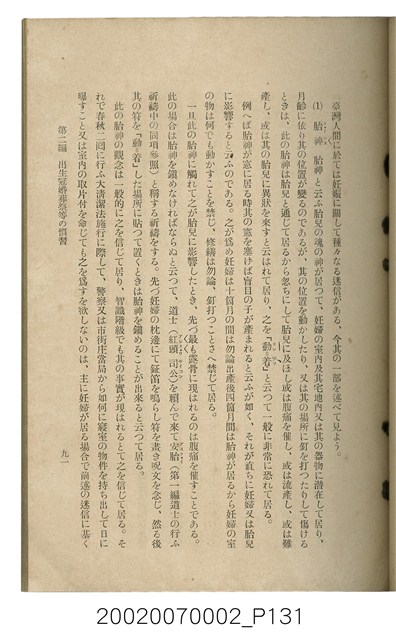 臺灣人間に於ては妊娠に關して種々なる迷信がある、今其の一部を述べて見よう。
(1) 胎神 胎神と云ふ胎兒の魂の神が居つて、妊婦の室內及其宅地內又は其の器物に潛在して居り、
月齡に依り其の位置が變るのであるが、其の位置を動かしたり、又は其の場所に釘を打つたりして傷ける
ときは、此の胎神は胎兒と通じて居るから忽ちにして胎兒に及ほし或は腹痛を催し、或は流產し、或は難
產し、或は其の胎兒に異狀を來すと云はれて居り、之を「動着」と云つて一般に非常に恐れて居る。
例へば胎神が窓に居る時其の窓を塞げば盲目の子が產まれると云ふが如く、それが直ちに妊婦又は胎兒
に影響すると云ふのである。之が爲め妊婦は十箇月の間は勿論出產後四箇月間は胎神が居るから妊婦の室
の物は何でも動かすことを禁じ、修繕は勿論、釘打つことさへ禁じて居る。
一旦此の胎神に觸れて之が胎兒に影響したとき、先づ最も露骨に現はれるのは腹痛を催すことである。
此の場合は胎神を鎭めなければならぬと云つて、道士（紅頭司公）を賴んで來て安胎（第一編道士の行ふ
祈禱中の同項參照）と稱する祈禱をする。先づ妊婦の枕邊にて鉦笛を鳴らし符を書き呪文を念じ、然る後
其の符を「動着」した場所に貼つて置くときは胎神を鎭めることが出來ると云つて居る。
此の胎神の觀念は一般的に之を信じて居り、智識階級でも其の事實が現はれるとて之を信じて居る。そ
れで春秋二囘に行ふ大淸潔法施行に際して、警察又は市街庄當局から如何に寢室の物件を持ち出して日に
曝すこと又は室內の取片付を命じても之を爲すを欲しないのは、主に妊婦が居る場合で前述の迷信に基く
第二編 出生冠婚葬祭等の慣習
九一
20020070002_P131